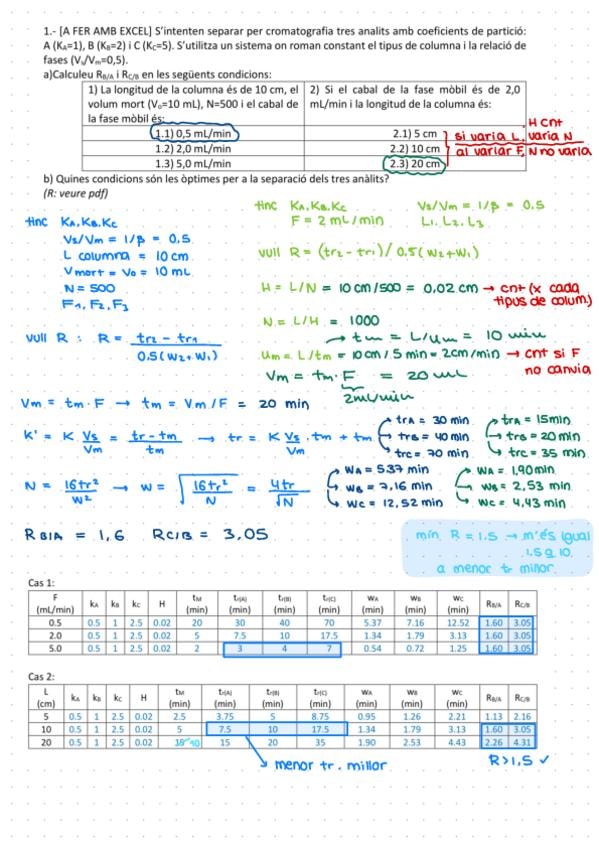 1.- [A FER AMB EXCEL] S'intenten separar per cromatografia tres analits amb coeficients de partició:
A (KA=1), B (KB=2) i C (KC=5). S'utilitza un sistema on roman constant el tipus de columna i la relació de
fases (Vs/Vm=0,5).
a)Calculeu RB/A i RC/B en les següents condicions:
1) La longitud de la columna és de 10 cm, el volum mort (Vo=10 mL), N=500 i el cabal de la fase mòbil és:
2) Si el cabal de la fase mòbil és de 2,0 mL/min i la longitud de la columna és:
1.1) 0,5 mL/min
2.1) 5 cm
1.2) 2,0 mL/min
2.2) 10 cm
1.3) 5,0 mL/min
2.3) 20 cm
H cnt
si varia L, varia N
al variar F, N no varia
b) Quines condicions són les òptimes per a la separació dels tres anàlits?
(R: veure pdf)
tinc KA, KB, KC
Vs/Vm = 1/β = 0,5
L columna = 10cm
Vmort = Vo = 10 mL
N = 500
F1, F2, F3
vull R : R = tr2 - tr1 / 0.5(W2+W1)
tinc KA, KB, KC
Vs/Vm = 1/β = 0.5
F = 2 mL/min
L1, L2, L3
vull R = (tr2 - tr1) / 0.5(W2 + W1)
H = L/N = 10cm/500 = 0,02 cm → cnt (x cada tipus de colum)
N = L/H = 1000
→ tm = L/um = 10 min
um = L/tm = 10cm / 5 min = 2cm/min → cnt si F no canvia
Vm = tm · F = 20 mL
2mL/min
Vm = tm · F → tm = Vm/F = 20 min
k' = K Vs/Vm = tr-tm/tm → tr = K Vs/Vm · tm + tm
trA = 30 min
trB = 40 min
trC = 70 min
trA = 15min
trB = 20min
trC = 35 min
N = 16tr²/W² → W = √16tr²/N = 4tr/√N
WA = 5.37 min
WB = 7,16 min
WC = 12,52 min
WA = 1,90min
WB = 2,53 min
WC = 4,43 min
RB/A = 1,6 RC/B = 3,05
min R = 1.5 → m'és igual
1.5 q 10.
a menor tr millor.
Cas 1:
F (mL/min) kA kB kC H tM (min) tr(A) (min) tr(B) (min) tr(C) (min) wA (min) wB (min) wC (min) RB/A RC/B
0.5 0.5 1 2.5 0.02 20 30 40 70 5.37 7.16 12.52 1.60 3.05
2.0 0.5 1 2.5 0.02 5 7.5 10 17.5 1.34 1.79 3.13 1.60 3.05
5.0 0.5 1 2.5 0.02 2 3 4 7 0.54 0.72 1.25 1.60 3.05
Cas 2:
L (cm) kA kB kC H tM (min) tr(A) (min) tr(B) (min) tr(C) (min) wA (min) wB (min) wC (min) RB/A RC/B
5 0.5 1 2.5 0.02 2.5 3.75 5 8.75 0.95 1.26 2.21 1.13 2.16
10 0.5 1 2.5 0.02 5 7.5 10 17.5 1.34 1.79 3.13 1.60 3.05
20 0.5 1 2.5 0.02 10 15 20 35 1.90 2.53 4.43 2.26 4.31
menor tr. millor
R>1,5 ✓